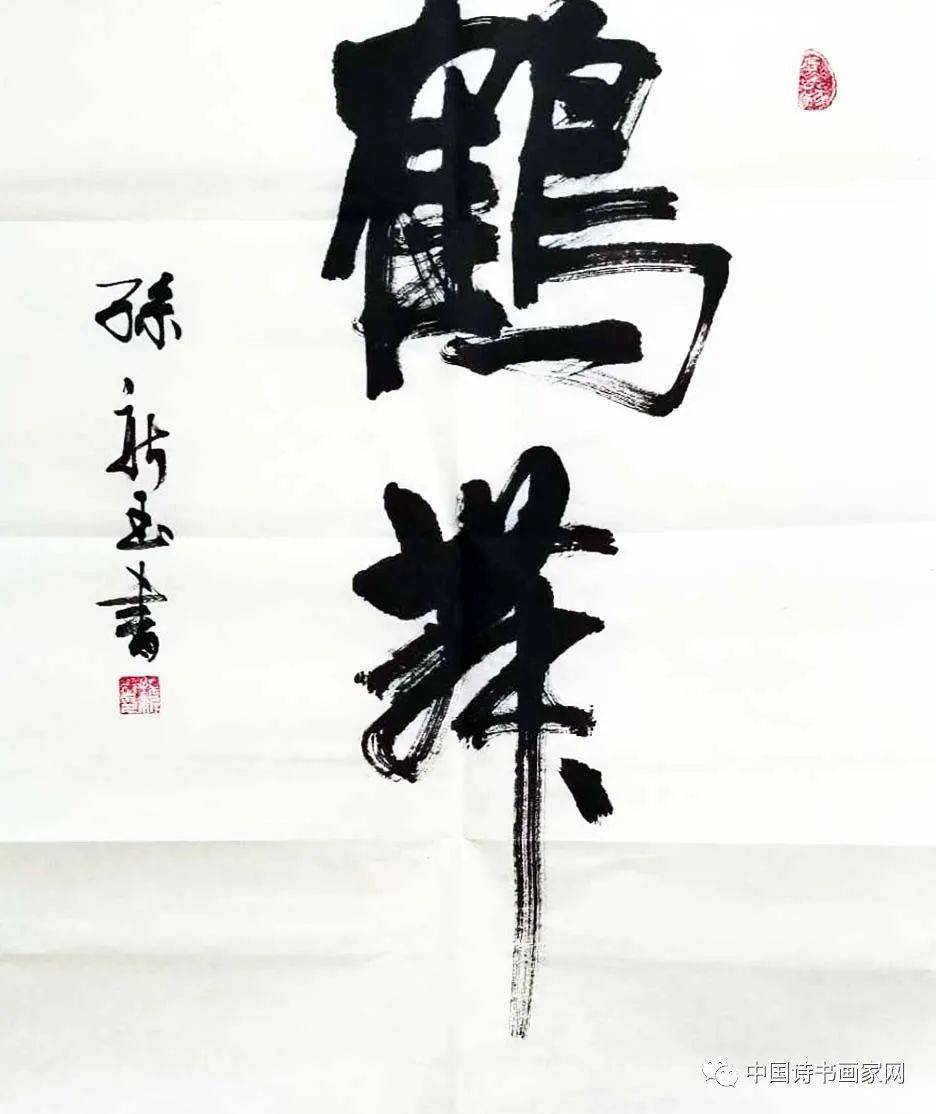 鹤舞
孙新玉书
中国诗书画家网